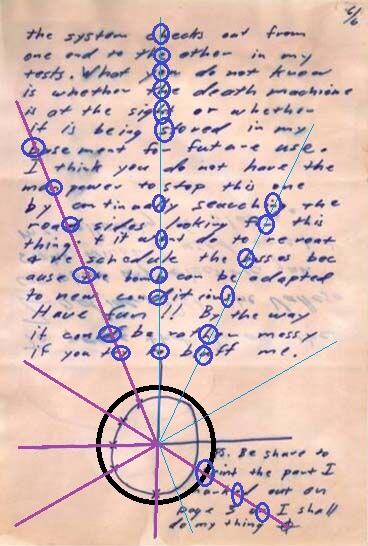 6/6
the system checks out from
one end to the other in my
tests. What you do not know
is whether the death machine
is at the sight or whether
it is being stored in my
basement for future use.
I think you do not have the
man power to stop this one
by continually searching the
road sides looking for this
thing + it wont do to re roat
+ re schedule the busses bec
ause the bomb can be adapted
to new conditions.
Have fun!! By the way
it could be rather messy
if you try to bluff me.
PS. Be shure to
print the part I
marked out on
page 3 or I shall
do my thing